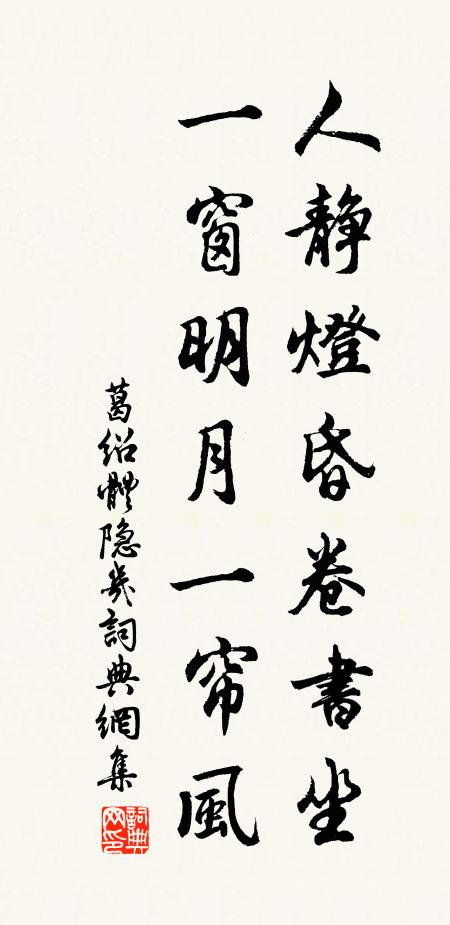 人靜燈昏卷書坐
一窗明月一帘風
葛紹體隐几詞典網集
詞典網印